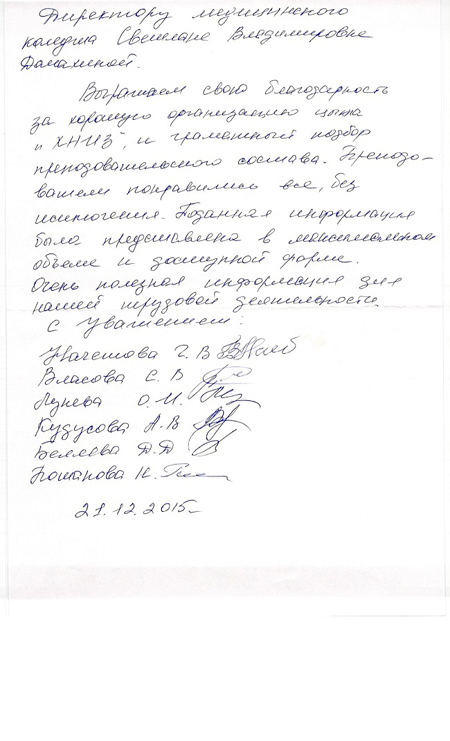 Директору медицинского
колледжа Светлане Владимировне
Выражаем свою благодарность
за хорошую организацию цикла
"ХНИЗ", и грамотный подбор
преподовательского состава. Преподо-
ватели понравились все, без
исключения. Поданная информация
была представлена в максимальном
объеме и доступной форме.
Очень полезная информация для
нашей трудовой деятельности.
С уважением:
Власова С. В
Лунева О. И.
Кудусова А. В
Беляева Д. Д
21.12.2015-